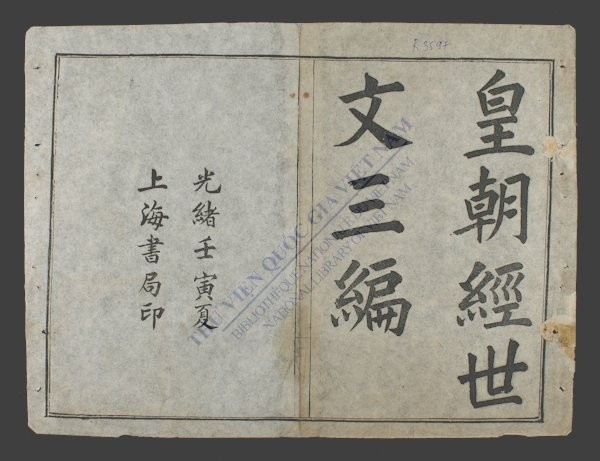 皇朝經世
文三編
光緒壬寅夏
上海書局印
THƯ VIỆN QUỐC GIA VIỆT NAM
BIBLIOTHÈQUE NATIONALE DU VIET NAM
NATIONAL LIBRARY OF VIET NAM
R.3597